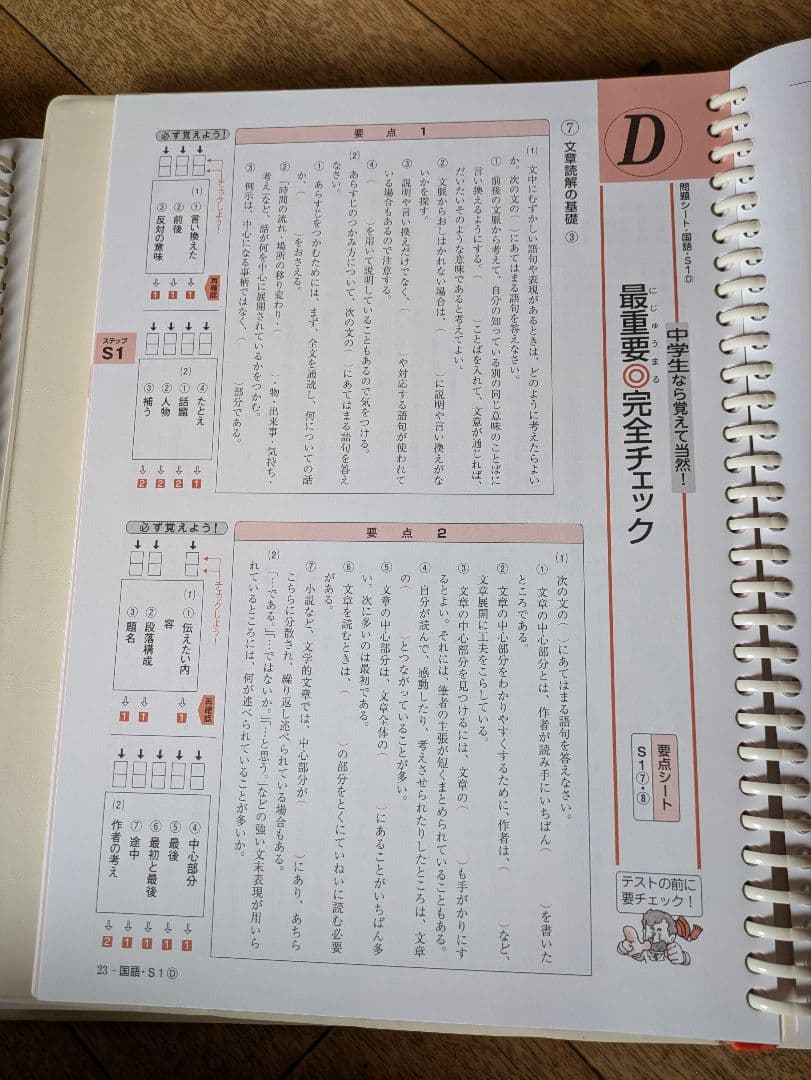 D
問題シート・国語・S1Ⓓ
中学生なら覚えて当然!
にじゅうまる
最重要◎完全チェック
要点シート
S1⑦・⑧
テストの前に
要チェック!
⑦ 文章読解の基礎 ③
要点1
(1) 文中にむずかしい語句や表現があるときは、どのように考えたらよい
か、次の文の( )にあてはまる語句を答えなさい。
① 前後の文脈から考えて、自分の知っている別の同じ意味のことばに
言い換えるようにする。( )ことばを入れて、文意が通じれば、
だいたいそのような意味であると考えてよい。
② 文脈からおしはかれない場合は、( )に説明や言い換えがな
いかを探す。
③ 説明や言い換えだけでなく、( )や対応する語句が使われて
いる場合もあるので注意する。
④ ( )を用いて説明していることもあるので気をつける。
(2) あらすじのつかみ方について、次の文の( )にあてはまる語句を答え
なさい。
① あらすじをつかむためには、まず、全文を通読し、何についての話
か、( )をおさえる。
② 時間の流れ・場所の移り変わり・( )・物・出来事・気持ち・
考えなど、話が何を中心に展開されているかをつかむ。
③ 例示は、中心になる事柄ではなく、( )部分である。
必ず覚えよう!
チェックしよう!
(1)
① 言い換えた
② 前後
③ 反対の意味
再確認
1
1
1
④ たとえ
(2)
① 話題
② 人物
③ 補う
1
2
2
2
ステップ
S1
要点2
(1) 次の文の( )にあてはまる語句を答えなさい。
① 文章の中心部分とは、作者が読み手にいちばん( )を書いた
ところである。
② 文章の中心部分をわかりやすくするために、作者は、( )など、
文章展開に工夫をこらしている。
③ 文章の中心部分を見つけるには、文章の( )も手がかりにす
るとよい。それには、筆者の主張が短くまとめられていることもある。
④ 自分が読んで、感動したり、考えさせられたりしたところは、文章
の( )とつながっていることが多い。
⑤ 文章の中心部分は、文章全体の( )にあることがいちばん多
い。次に多いのは最初である。
⑥ 文章を読むときは、( )の部分をとくにていねいに読む必要
がある。
⑦ 小説など、文学的文章では、中心部分が( )にあり、あちら
こちらに分散され、繰り返し述べられている場合もある。
(2) 「…である。」「…ではないか。」「…と思う。」などの強い文末表現が用いら
れているところには、何が述べられていることが多いか。
必ず覚えよう!
チェックしよう!
(1)
① 伝えたい内
容
② 段落構成
③ 題名
再確認
1
1
1
④ 中心部分
⑤ 最後
⑥ 最初と最後
⑦ 途中
(2)
作者の考え
1
1
1
1
2
23-国語・S1Ⓓ